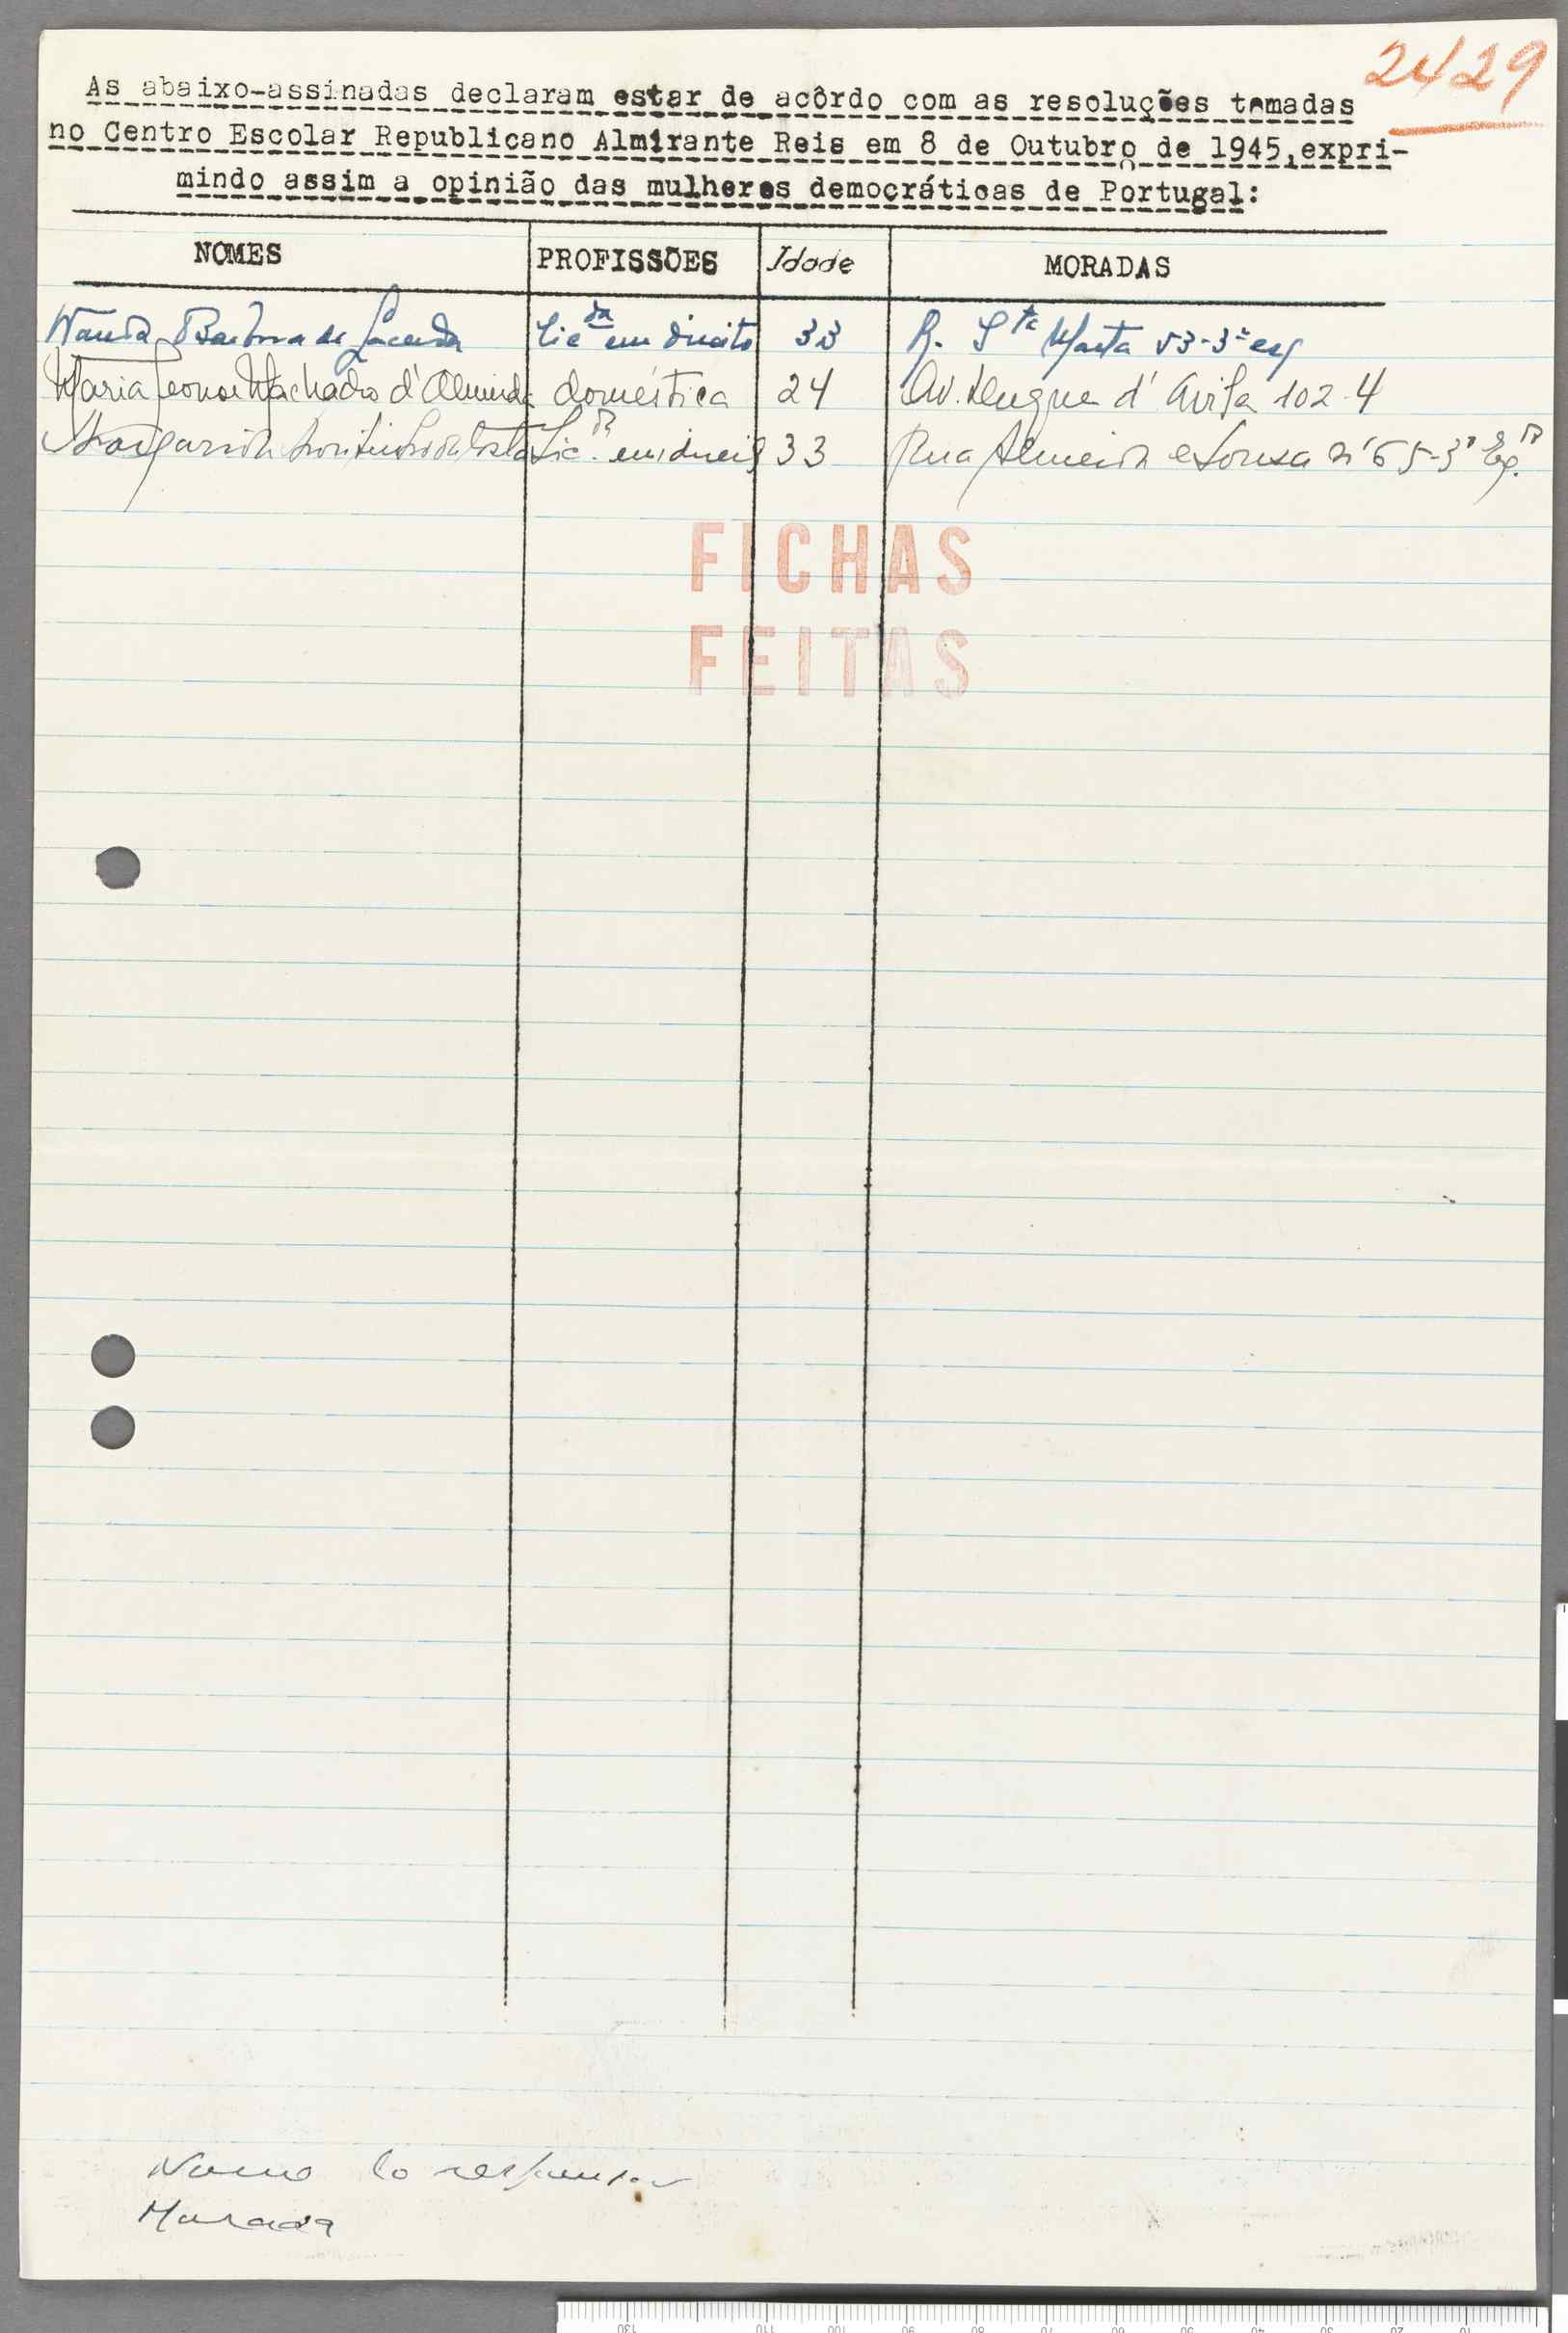 2429
As abaixo-assinadas declaram estar de acôrdo com as resoluções tomadas
no Centro Escolar Republicano Almirante Reis em 8 de Outubro de 1945,expri-
mindo assim a opinião das mulheres democráticas de Portugal:
NOMES PROFISSÕES Idade MORADAS
Wanda Barbosa de Lacerda Lic.da em direito 33 R. Sta Marta 53-3º esq
Maria Machado d'Almeida doméstica 24 Av. Duque d'Avila 102-4
Margarida da Costa Lic.da em direito 33 Rua Almeida e Sousa nº 65-3º Esq.
FICHAS
FEITAS
Nome do
Morada